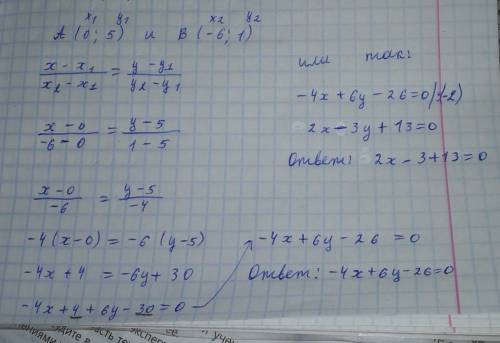 x₁ y₁ x₂ y₂
A (0; 5) и B (-6; 1)
(x - x₁)/(x₂ - x₁) = (y - y₁)/(y₂ - y₁)
(x - 0)/(-6 - 0) = (y - 5)/(1 - 5)
(x - 0)/(-6) = (y - 5)/(-4)
-4(x-0) = -6(y-5)
-4x + 4 = -6y + 30
-4x + 4 + 6y - 30 = 0
-4x + 6y - 26 = 0
Ответ: -4x + 6y - 26 = 0
или так:
-4x + 6y - 26 = 0 |:(-2)
2x - 3y + 13 = 0
Ответ: 2x - 3 + 13 = 0